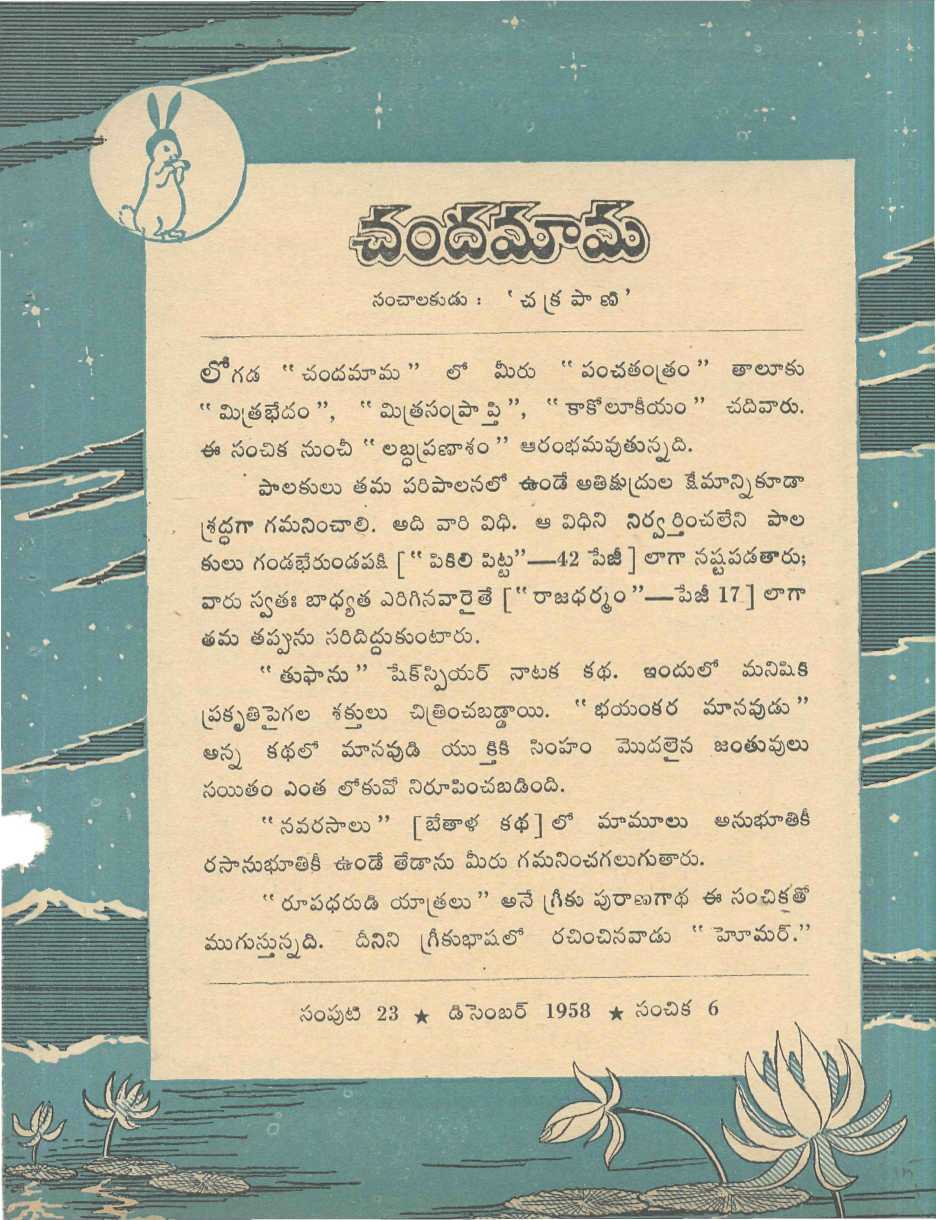 చందమామ
సంచాలకుడు : ' చ క్ర పా ణి '
లోగడ " చందమామ " లో మీరు " పంచతంత్రం " తాలూకు
" మిత్రభేదం ", " మిత్రసంప్రాప్తి ", " కాకోలూకీయం " చదివారు.
ఈ సంచిక నుంచీ " లబ్ధప్రణాశం " ఆరంభమవుతున్నది.
పాలకులు తమ పరిపాలనలో ఉండే అతిక్షుద్రుల క్షేమాన్నికూడా
శ్రద్ధగా గమనించాలి. అది వారి విధి. ఆ విధిని నిర్వర్తించలేని పాల
కులు గండభేరుండపక్షి [ " పికిలి పిట్ట"—42 పేజీ ] లాగా నష్టపడతారు;
వారు స్వతః బాధ్యత ఎరిగినవారైతే [ " రాజధర్మం "—పేజీ 17 ] లాగా
తమ తప్పును సరిదిద్దుకుంటారు.
" తుఫాను " షేక్‌స్పియర్ నాటక కథ. ఇందులో మనిషికి
ప్రకృతిపైగల శక్తులు చిత్రించబడ్డాయి. " భయంకర మానవుడు "
అన్న కథలో మానవుడి యుక్తికి సింహం మొదలైన జంతువులు
సయితం ఎంత లోకువో నిరూపించబడింది.
" నవరసాలు " [ బేతాళ కథ ] లో మామూలు అనుభూతికీ
రసానుభూతికీ ఉండే తేడాను మీరు గమనించగలుగుతారు.
" రూపధరుడి యాత్రలు " అనే గ్రీకు పురాణగాథ ఈ సంచికతో
ముగుస్తున్నది. దీనిని గ్రీకుభాషలో రచించినవాడు " హెూమర్."
సంపుటి 23 ★ డిసెంబర్ 1958 ★ సంచిక 6